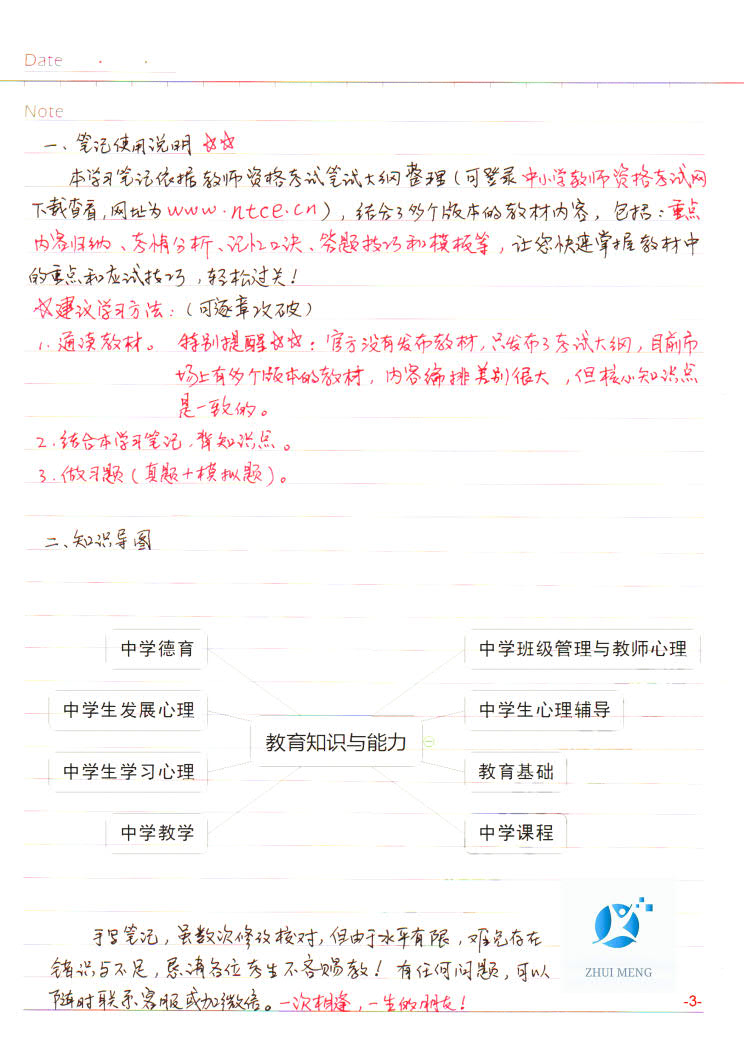 Date
Note
一、笔记使用说明 ☆☆
本学习笔记依据教师资格考试笔试大纲整理(可登录中小学教师资格考试网
下载查看,网址为www.ntce.cn),结合了多个版本的教材内容,包括:重点
内容归纳、考情分析、记忆口诀、答题技巧和模板等,让您快速掌握教材中
的重点和应试技巧,轻松过关!
☆建议学习方法:(可逐章攻破)
1.通读教材。 特别提醒☆☆:官方没有发布教材,只发布了考试大纲,目前市
场上有多个版本的教材,内容编排差别很大,但核心知识点
是一致的。
2.结合本学习笔记,背知识点。
3.做习题(真题+模拟题)。
二、知识导图
中学德育
中学班级管理与教师心理
中学生发展心理
中学生心理辅导
教育知识与能力
中学生学习心理
教育基础
中学教学
中学课程
手写笔记,虽数次修改核对,但由于水平有限,难免存在
错误与不足,恳请各位考生不吝赐教!有任何问题,可以
随时联系客服或加微信。一次相逢,一生的朋友!
ZHUI MENG
-3-